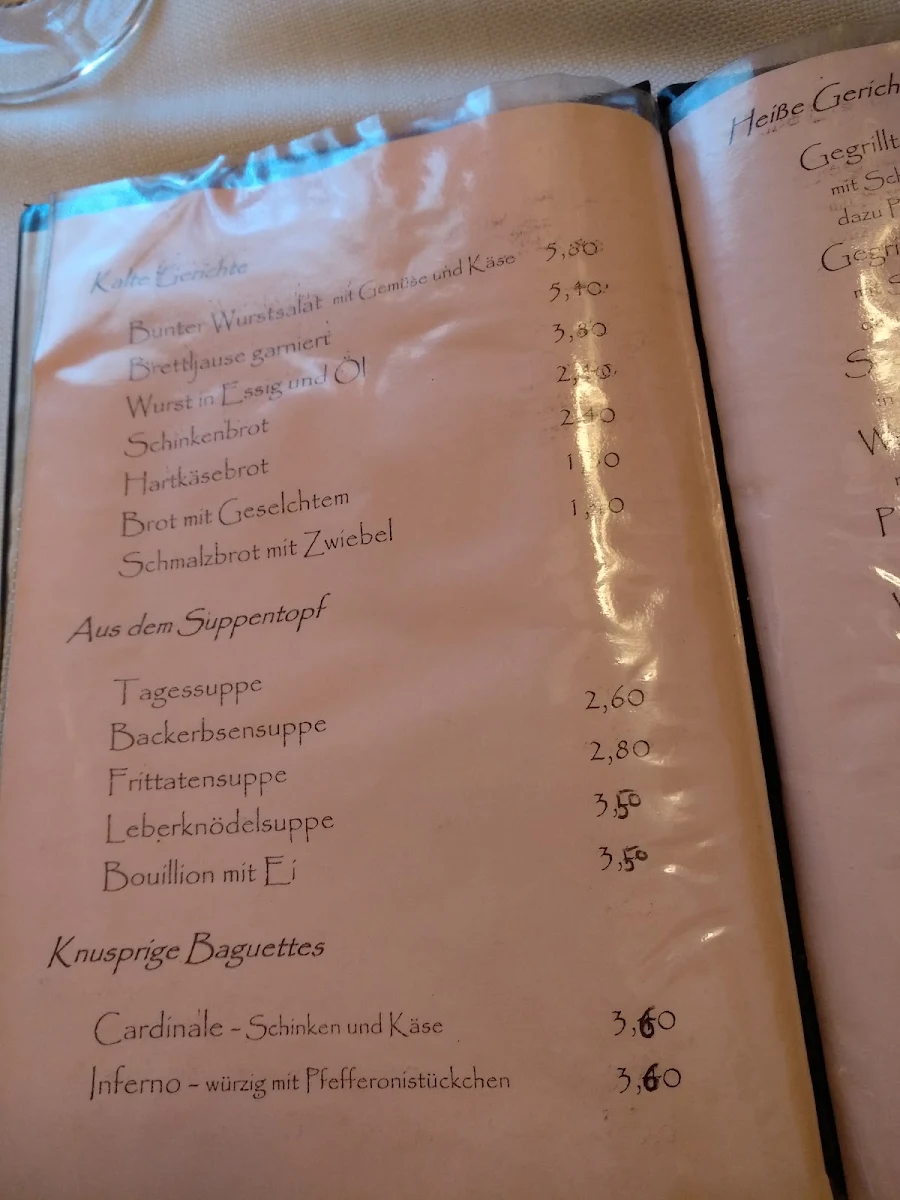 Kalte Gerichte
Bunter Wurstsalat mit Gemüse und Käse 5,80
Brettljause garniert 5,40
Wurst in Essig und Öl 3,80
Schinkenbrot
Hartkäsebrot 2,40
Brot mit Geselchtem
Schmalzbrot mit Zwiebel
Aus dem Suppentopf
Tagessuppe
Backerbsensuppe 2,60
Frittatensuppe 2,80
Leberknödelsuppe 3,50
Bouillion mit Ei 3,50
Knusprige Baguettes
Cardinale - Schinken und Käse 3,60
Inferno - würzig mit Pfefferonistückchen 3,60
Heiße Gerich
Gegrillt
mit Sch
dazu P
Gegri